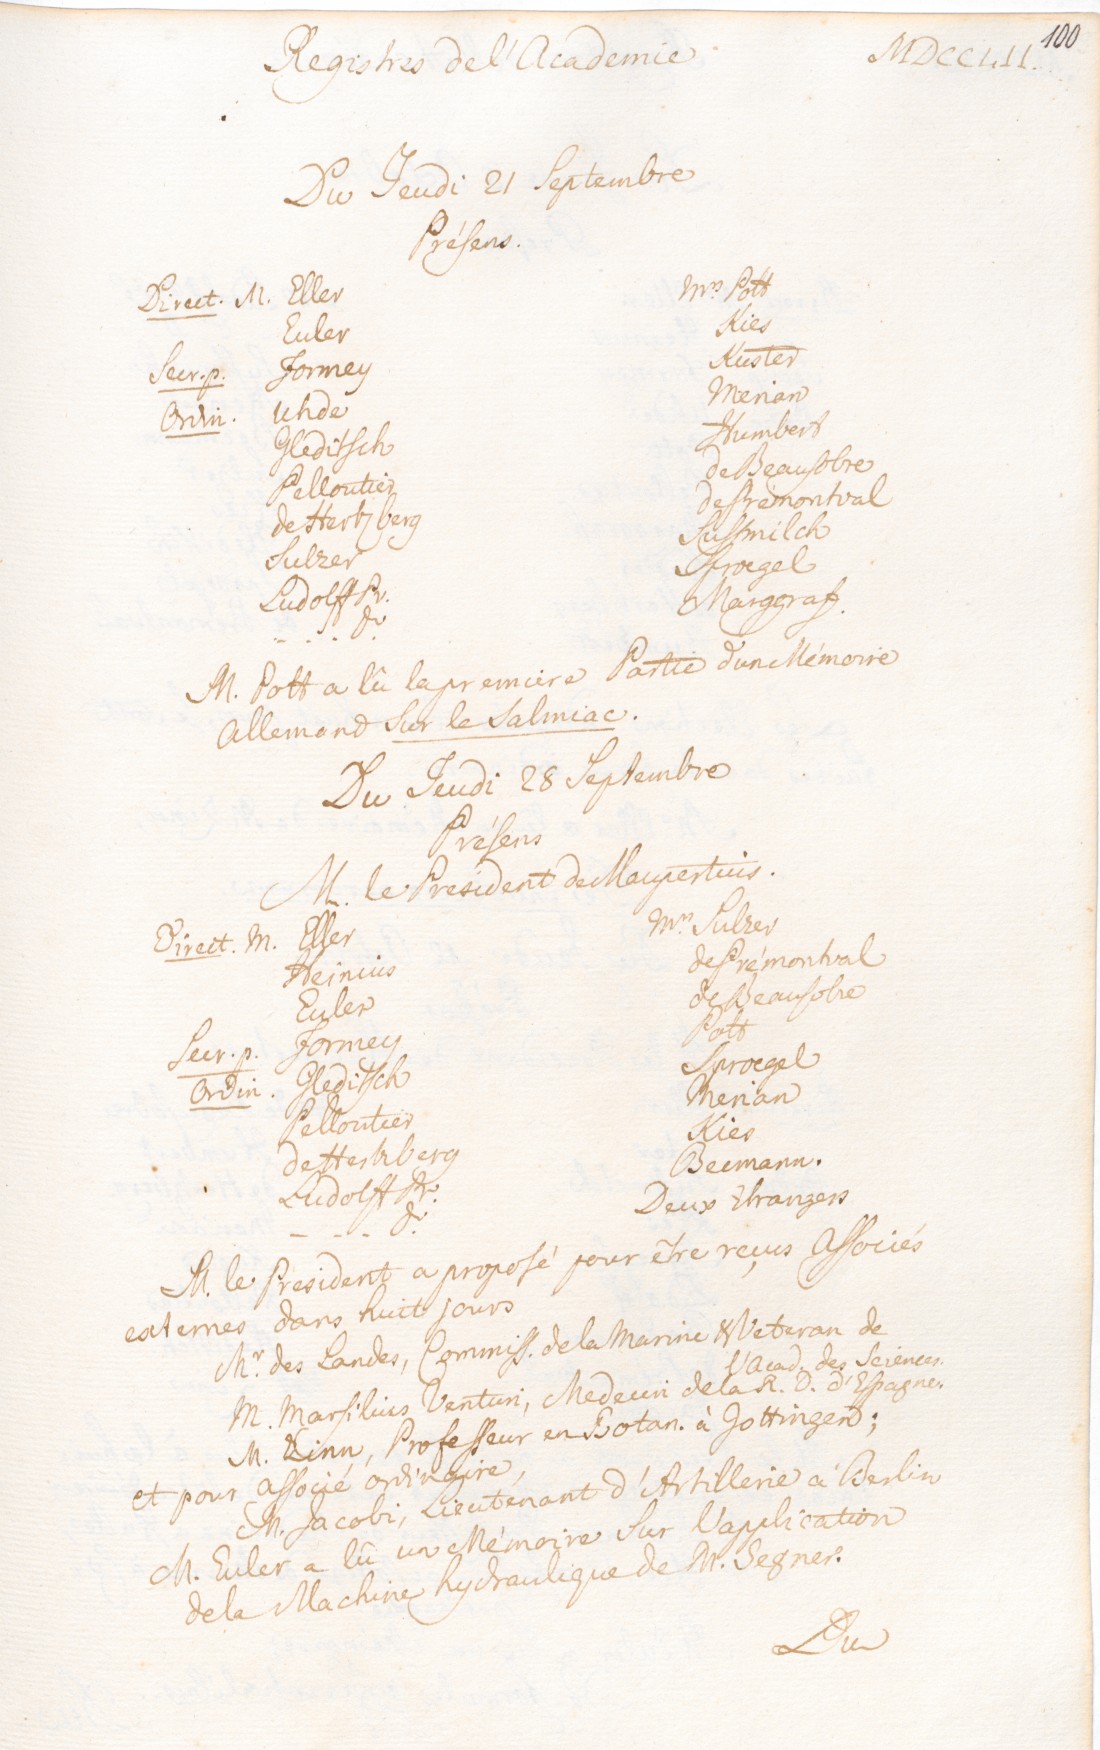 100
Registres de l'Academie MDCCLII.
Du Jeudi 21 Septembre
Présens.
Direct. M. Eller
Euler
Secr. p. Formey
Ordin. Uhde
Gleditsch
Pelloutier
de Hertzberg
Sulzer
Ludolff Pr.
- . . . &c.
Mrs Pott
Kies
Kuster
Merian
Humbert
de Beausobre
de Prémontval
Sussmilch
Sproegel
Marggraf.
M. Pott a lû la premiere Partie d'un Mémoire
Allemand sur le Salmiac.
Du Jeudi 28 Septembre
Présens
M. le President de Maupertuis.
Direct. M. Eller
Heinius
Euler
Secr. p. Formey
Ordin. Gleditsch
Pelloutier
de Hertzberg
Ludolff Pr.
- - - - &c.
Mrs Sulzer
de Prémontval
de Beausobre
Pott
Sproegel
Merian
Kies
Becmann.
Deux étrangers
M. le President a proposé pour être reçus Associés
externes dans huit jours
Mr. des Landes, Commiss. de la Marine & Veteran de
l'Acad. des Sciences.
M. Marsilius Venturi, Medecin de la R. D. d'Espagne.
M. Zinn, Professeur en Botan. à Gottingen;
et pour associé ordinaire,
M. Jacobi, Lieutenant d'Artillerie à Berlin
M. Euler a lû un Mémoire sur l'application
de la Machine hydraulique de M. Segner.
Du